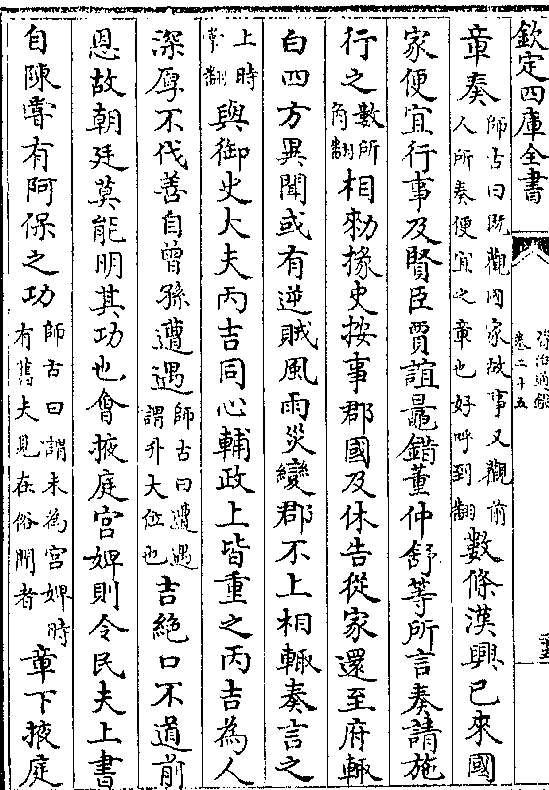 欽定四庫全書
資治通鑑
卷二十五
章奏師古曰既觀國家故事又觀前人所奏便宜之章也好呼到翻數條漢興已來國
家便宜行事及賢臣賈誼鼂錯董仲舒等所言奏請施
行之數所角翻相勑掾史按事郡國及休告從家還至府輒
白四方異聞或有逆賊風雨災變郡不上相輒奏言之
上時掌翻與御史大夫丙吉同心輔政上皆重之丙吉為人
深厚不伐善自曾孫遭遇師古曰遭遇謂升大位也吉絶口不道前
恩故朝廷莫能明其功也會掖庭宫婢則令民夫上書
自陳嘗有阿保之功師古曰謂未為宫婢時有舊夫見在俗間者章下掖庭